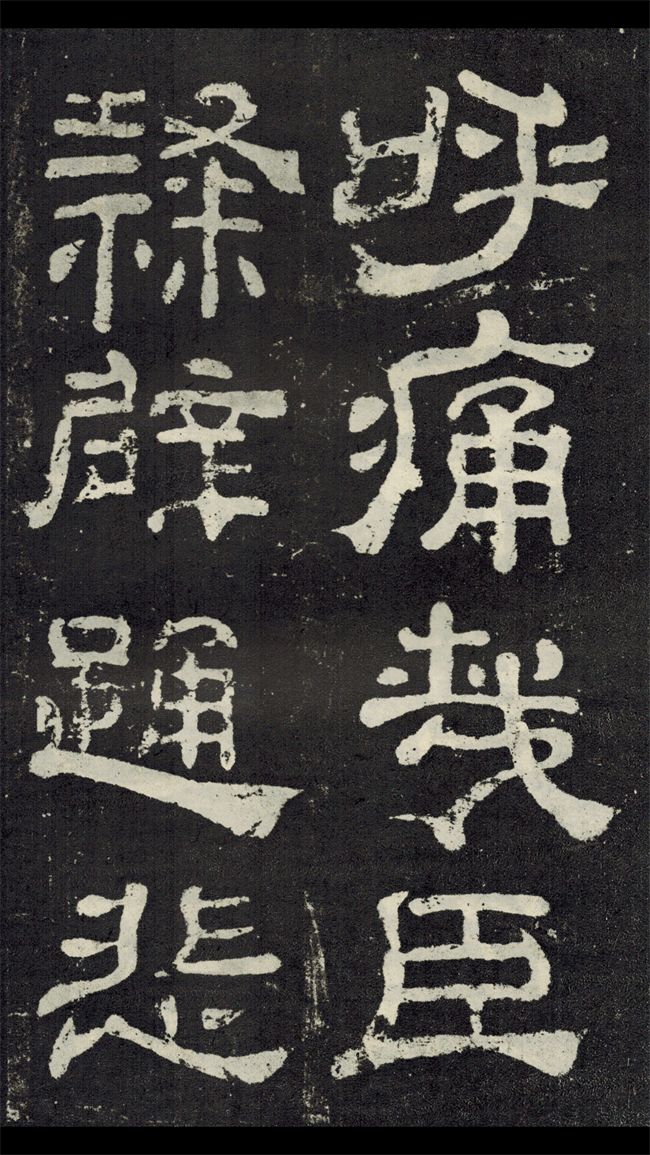 呼痛哉臣
隸辟踊悲